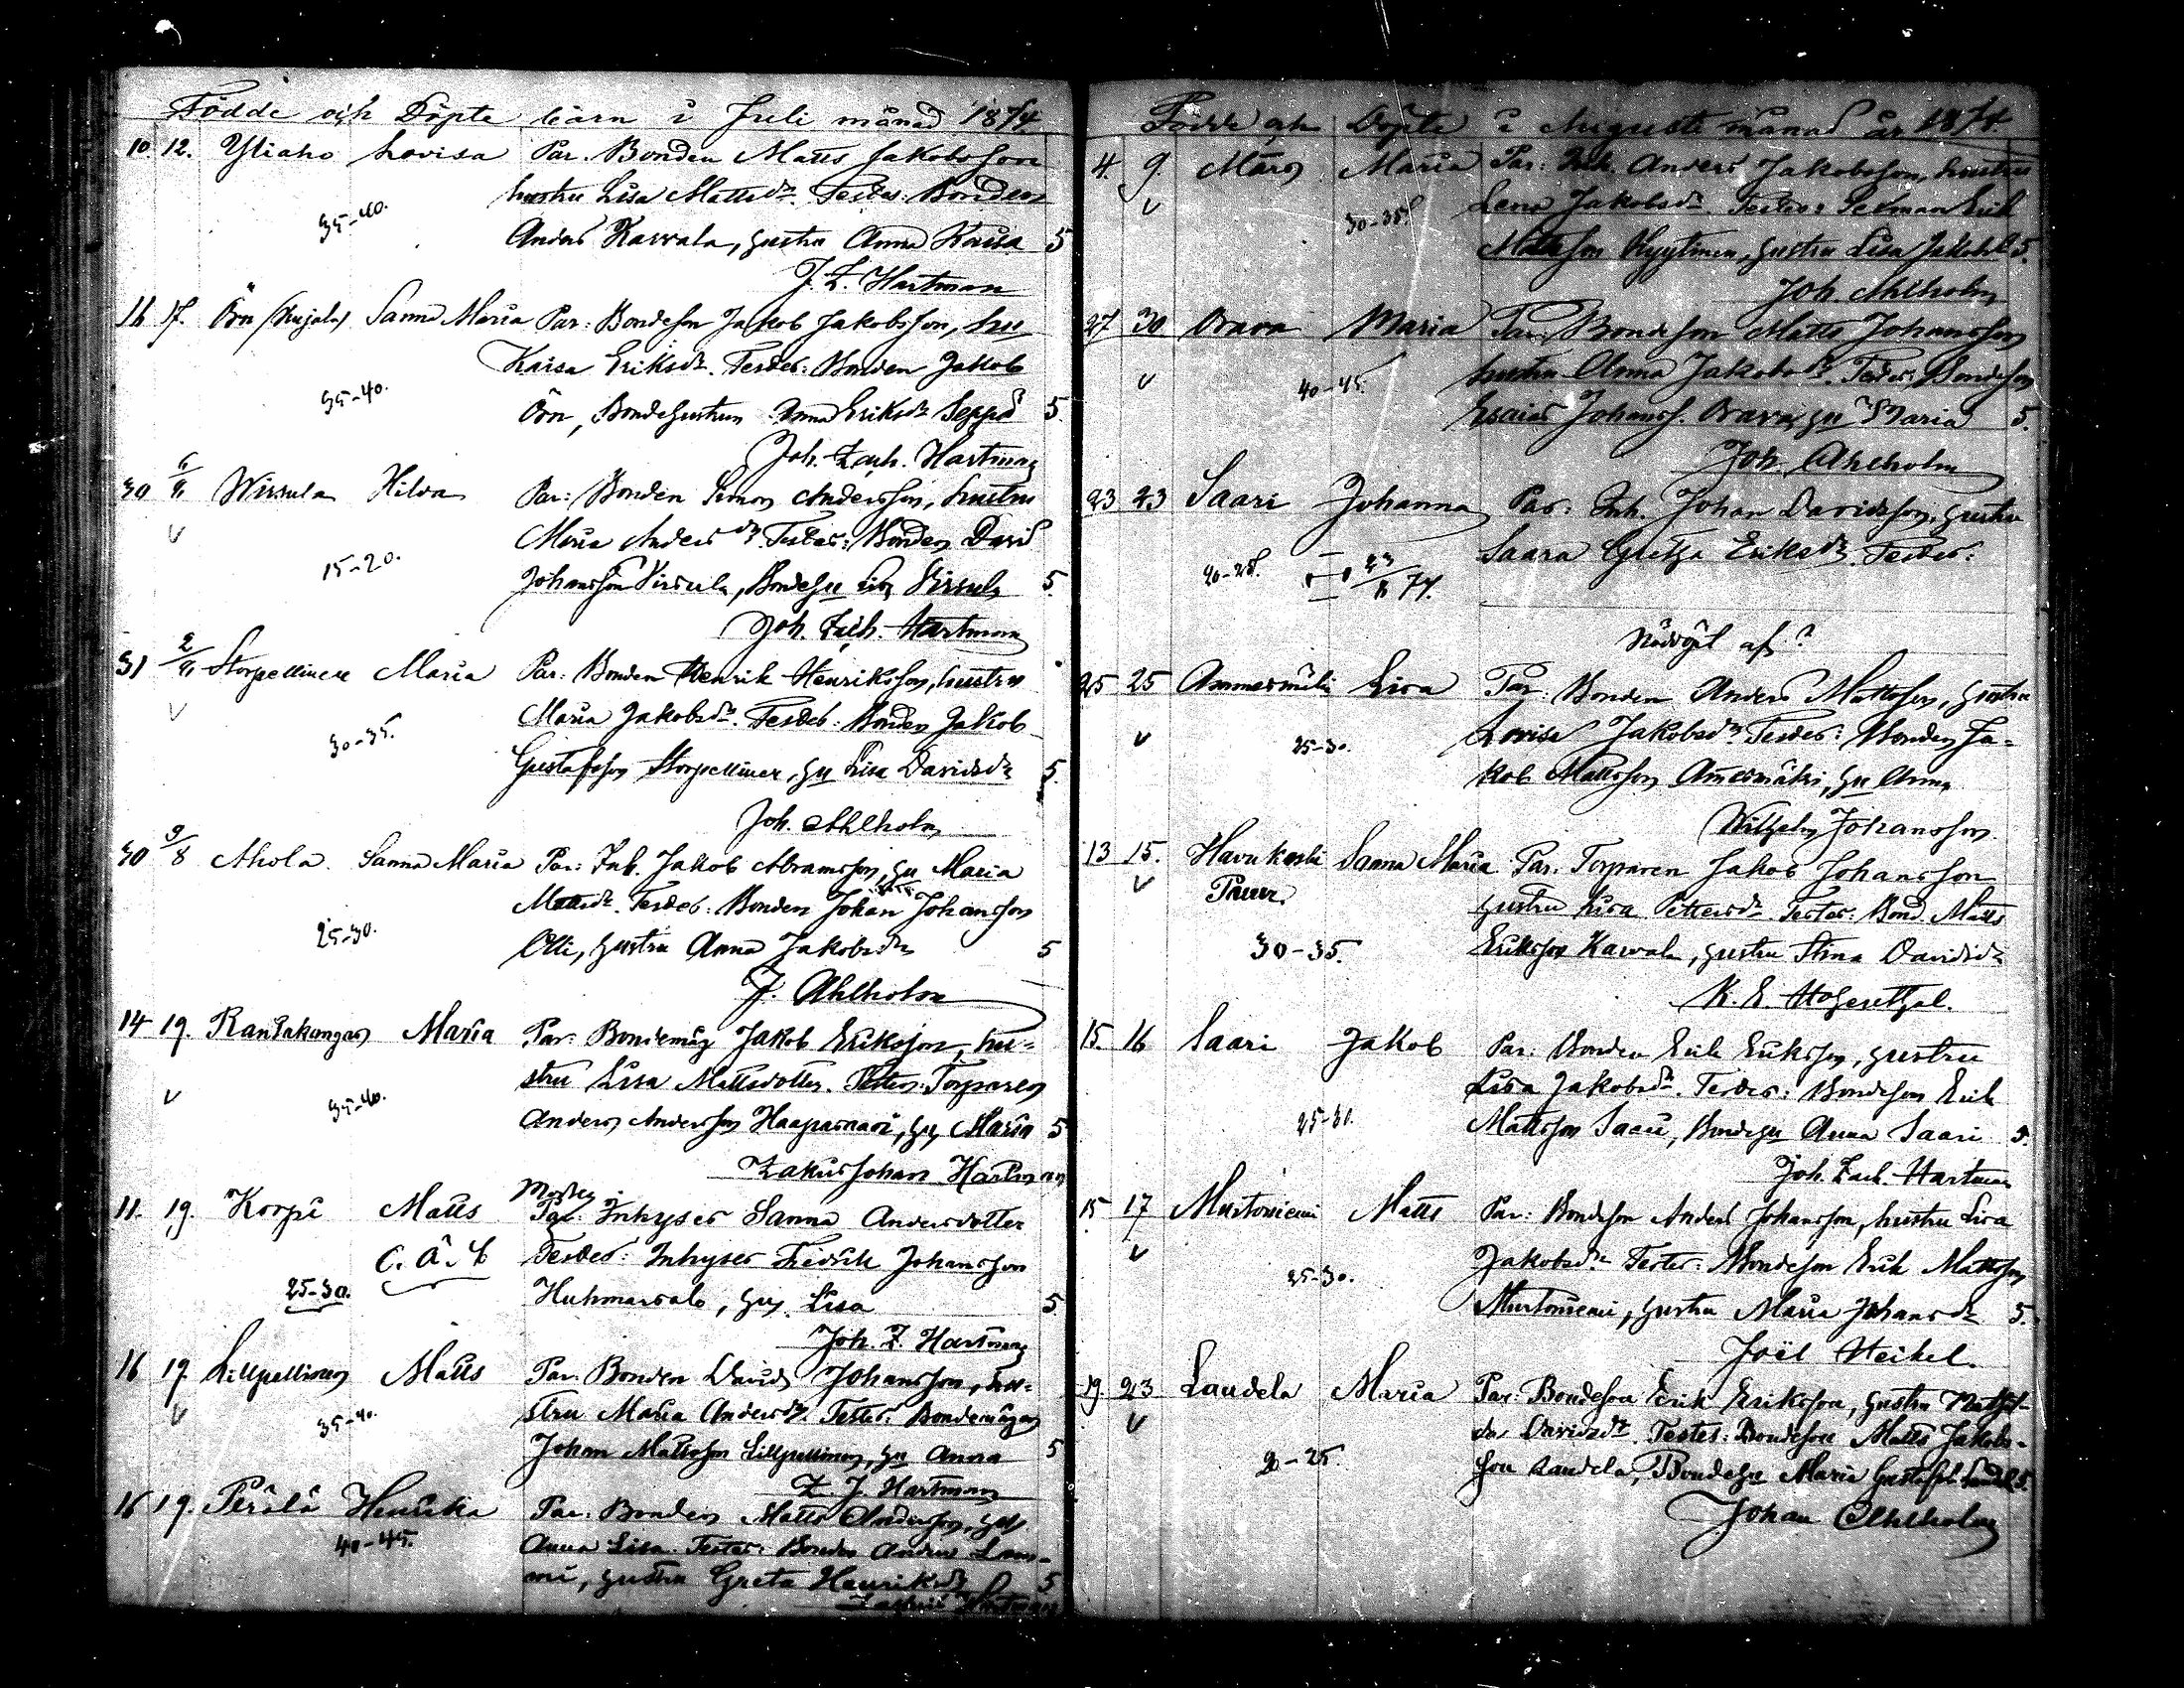 Födde och Döpte barn i Juli månad 1874.
10. 12. Yliaho Lovisa Par. Bonden Matts Jakobsson
hustru Lisa Mattsdr. Testes: Bonden
35-40.
Anders Karvala, hustru Anna Kaisa 5
J. Z. Hartman
16 17. Örn (Kujala) Sanna Maria Par: Bondeson Jakob Jakobsson, hu
Kaisa Eriksdr. Testes: Bonden Jakob
35-40.
Örn, Bondehustrun Anna Eriksdr Seppä 5.
Joh. Zach. Hartman
30 6/8 Wirsula Hilda Par: Bonden Simon Andersson, hustru
Maria Andersdr. Testes: Bonden David
15-20.
Johansson Virsula, Bondehu Lisa Virsula 5.
Joh. Zach. Hartman
31 2/8 Storpellinen Maria Par: Bonden Henrik Henriksson, hustru
Maria Jakobsdr. Testes: Bonden Jakob
30-35.
Gustafsson Storpellinen, hu Lisa Davidsdr 5.
Joh. Ahlholm
30 9/8 Ahola. Sanna Maria Par: Inh. Jakob Abramsson, hu Maria
Mattsdr. Testes: Bonden Johan Johansson
25-30.
Olli, hustru Anna Jakobsdr 5
J. Ahlholm
14 19. Rantakangas Maria Par: Bondemåg Jakob Eriksson, hu-
stru Lisa Mattsdotter. Testes: Torparen
35-40.
Anders Andersson Haapasaari, hu Maria 5
Zakris Johan Hartman
11. 19. Korpi Matts Moder: Par: Inhyses Sanna Andersdotter
C. Ä. Testes: Inhyses Fredrik Johansson
25-30.
Huhmarsalo, hu Lisa 5.
Joh. Z. Hartman
16 19. Lillpellinen Matts Par: Bonden David Johansson, hu-
stru Maria Andersdr. Testes: Bondemågen
35-40.
Johan Mattsson Lillpellinen, hu Anna 5
Z. J. Hartman
16 19. Perälä Henrika Par: Bonden Matts Andersson, hu
40-45.
Anna Lisa. Testes: Bonden Anders Lam-
mi, hustru Greta Henriksdr 5
Zachris Hartman
Födde och Döpte i Augusti månad år 1874.
4. 9. Mars Maria Par: Inh. Anders Jakobsson, hustru
Lena Jakobsdr. Testes: Erik
30-35.
Mattsson Kyytinen, hustru Lisa Jakobsd 5.
Joh. Ahlholm
27 30 Orava Maria Par: Bondeson Matts Johansson
hustru Anna Jakobsdr. Testes: Bondeson
40-45.
Esaias Johanss. Orava, hu Maria 5.
Joh. Ahlholm
23 23 Saari Johanna Par: Inh. Johan Davidsson, hustru
Saara Greta Eriksdr. Testes:
20-25. 23/8 74.
Nöddöpt af?
25 25 Ammesmäki Lisa Par: Bonden Anders Mattsson, hustru
Lovisa Jakobsdr. Testes: Bonden Ja-
25-30.
kob Mattsson Am̄esmäki, hu Anna
Wilhelm Johansson.
13 15. Havukoski Sanna Maria Par. Torparen Jakob Johansson
Purmo.
hustru Lisa Pettersdr. Testes: Bond. Matts
30-35.
Eriksson Karvala, hustru Stina Davidsdr
K. E. Hohenthal.
15. 16 Saari Jakob Par: Bonden Erik Eriksson, hustru
Lisa Jakobsdr. Testes: Bondeson Erik
25-30.
Mattsson Saari, Bondehu Anna Saari 5.
Joh. Zach. Hartman
15 17 Murtoniemi Matts Par: Bondeson Anders Johansson, hustru Lisa
Jakobsdr. Testes: Bondeson Erik Mattsson
25-30.
Murtoniemi, hustru Maria Johansdr 5.
Joël Heikel.
19. 23 Laudela Maria Par: Bondeson Erik Eriksson, hustru Mathil-
da Davidsdr. Testes: Bondeson Matts Jakobs-
20-25.
son Laudela, Bondehu Maria Gustafsd. 5.
Johan Ahlholm